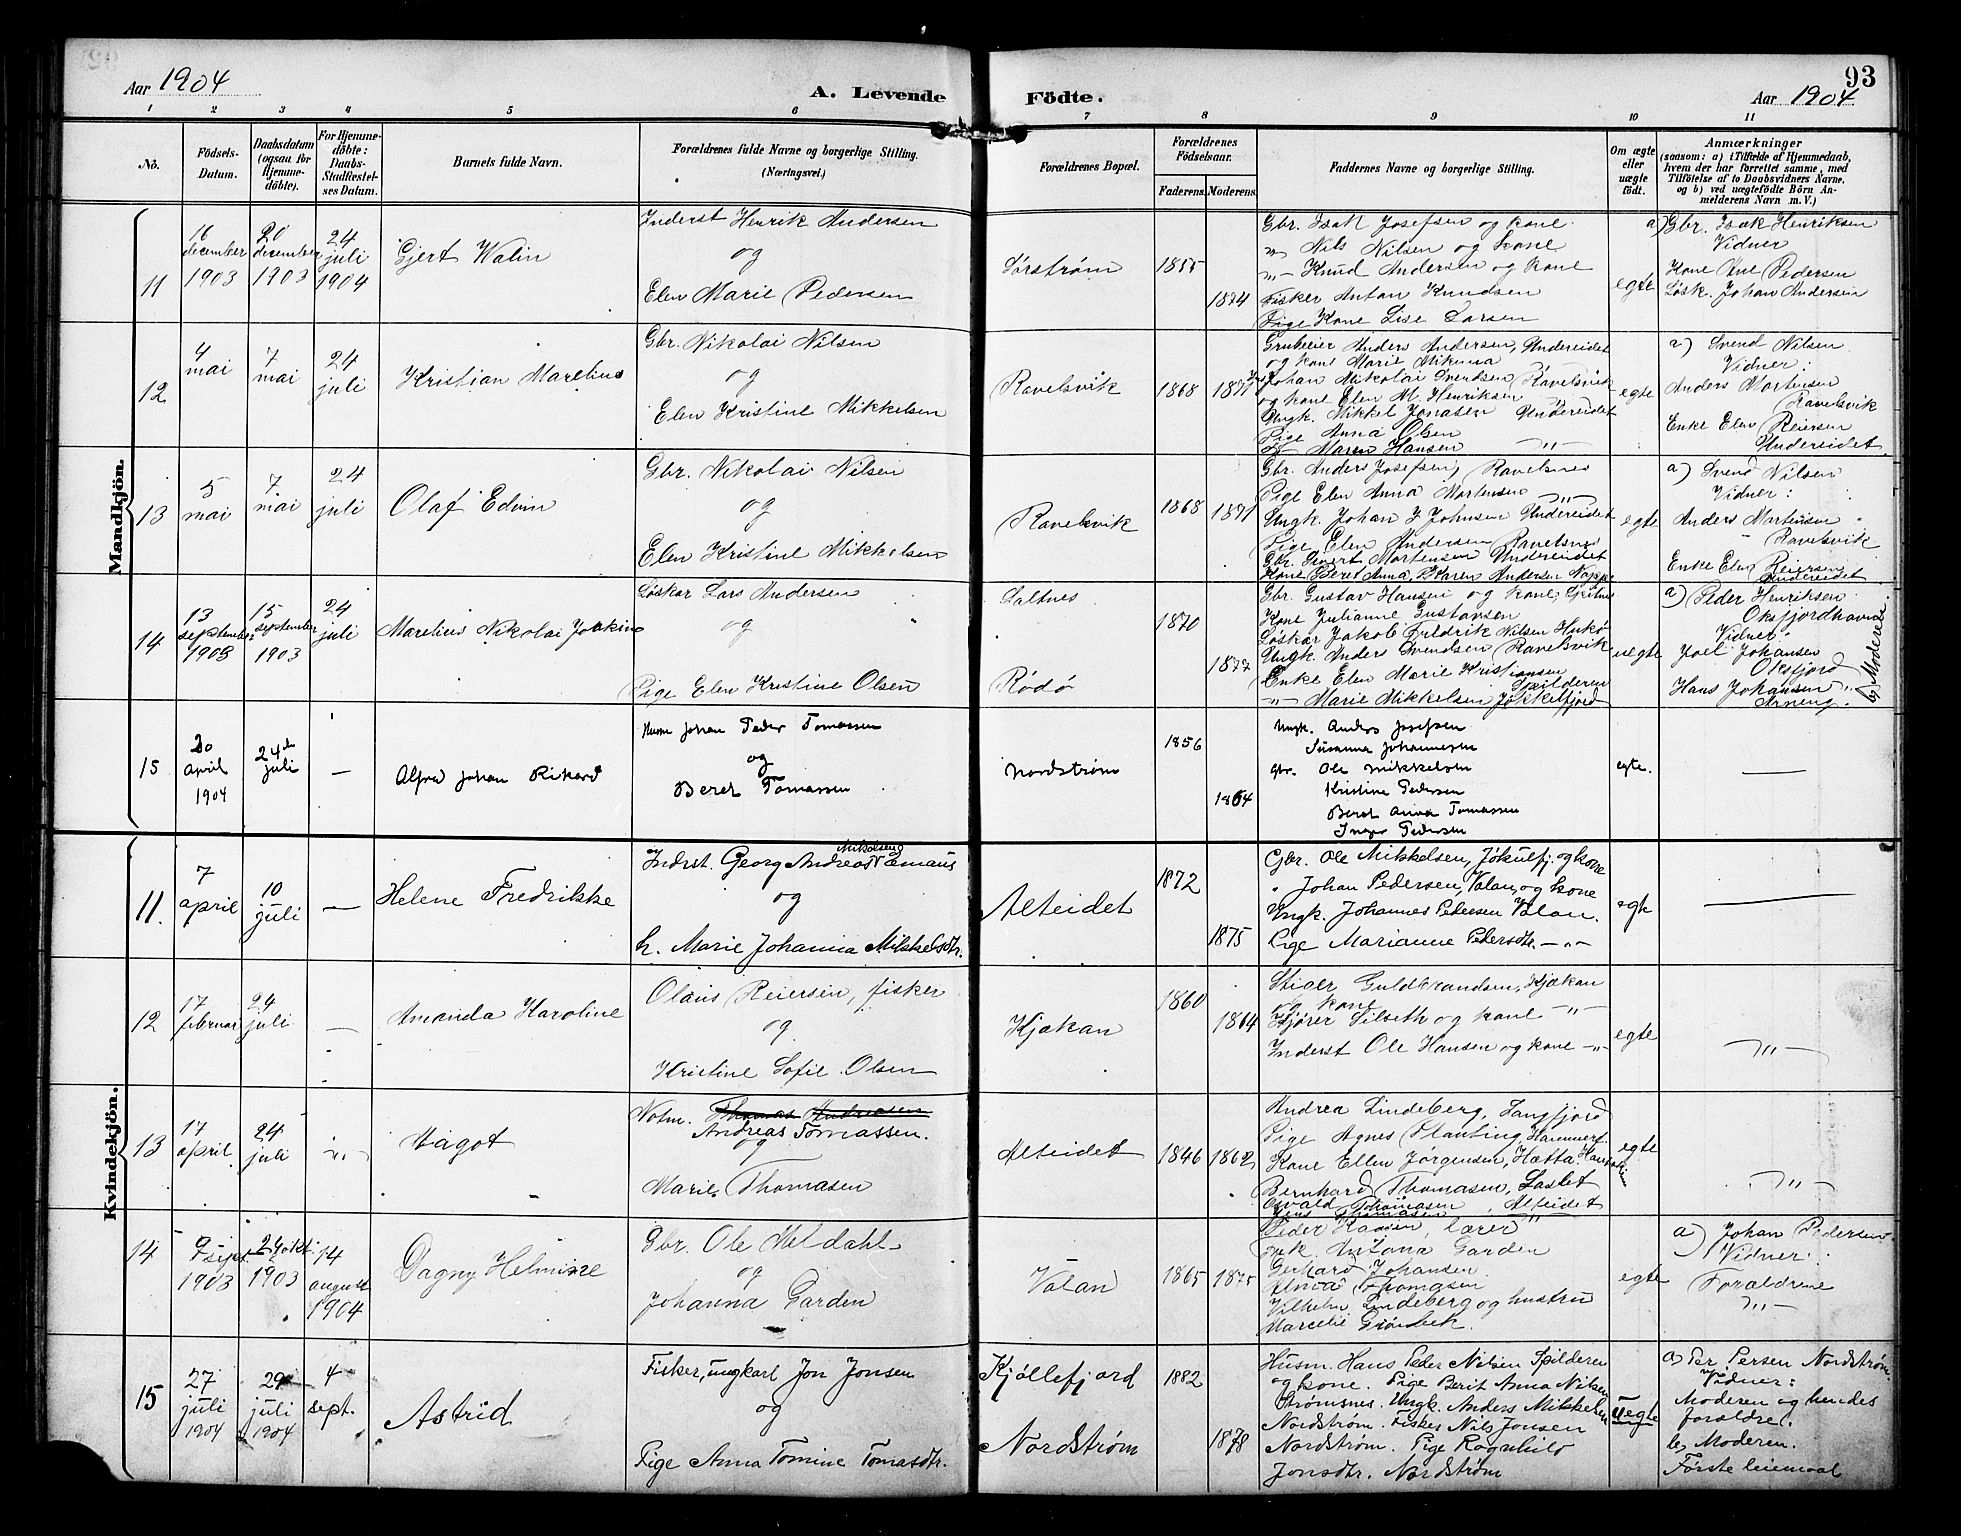 Aar 1904
A. Levende Födte.
93
Aar 1904.
1 2 3 4 5 6 7 8 9 10 11
No.
Födsels-
Datum.
Daabsdatum
(ogsaa for
Hjemme-
döbte).
For Hjemme-
döbte:
Daabs-
Stadfæstel-
ses Datum.
Barnets fulde Navn.
Forældrenes fulde Navne og borgerlige Stilling.
(Næringsvei.)
Forældrenes Bopæl.
Forældrenes
Födselsaar.
Faderens. Moderens.
Faddernes Navne og borgerlige Stilling.
Om ægte
eller
uægte
født.
Anmærkninger
(saasom: a) i Tilfælde af Hjemmedaab,
hvem der har forrettet samme, med
Tilföielse af to Daabsvidners Navne,
og b) ved uægtefödte Börn An-
melderens Navn m. V.)
Mandkjön.
11
16
december
1903
20
december
1903
24
juli
1904
Gjert Walin
Inderst Henrik Andersen
og
Elen Marie Pedersen
Sørstrøm
1855
1874
Gbr. Isak Josefsen og kone
"- Nils Nilsen og kone
"- Knud Andersen og kone
Fisker Anton Knudsen
Pige Kone Lise Larsen
egte
a) Gbr. Isak Henriksen
Vidner
Kone Ane Pedersen
Løsk. Johan Andersen
12
4
mai
7
mai
24
juli
Kristian Marelius
Gbr. Nikolai Nilsen
og
Elen Kristine Mikkelsen
Ravelsvik
1868
1871
Grubeier Anders Andersen, Undereidet
og kone Marie Mikena
Johan Nikolai Svendsen, Ravelsvik
og kone Elen M. Henriksen "
Ungk. Mikkel Jonasen Undereidet
Pige Anna Olsen
Maren Hansen -"-
egte
a) Svend Nilsen
Vidner:
Anders Mortensen
Ravelsvik
Enke Elen Reiersen
Undereidet
13
5
mai
7
mai
24
juli
Olaf Edvin
Gbr. Nikolai Nilsen
og
Elen Kristine Mikkelsen
Ravelsvik
1868
1871
Gbr. Anders Josefsen, Ravelsnes
Pige Elen Anna Mortensen -"-
Ungk. Johan J Johnsen Undereidet
Pige Elen Andersen Ravelsnes
Gbr. Sivert Mortensen Undereidet
Kone Beret Anna, Karen Andersen
egte
a) Svend Nilsen
Vidner:
Anders Mortensen
Ravelsvik
Enke Elen Reiersen
Undereidet
14
13
september
1903
15
september
1903
24
juli
Marelius Nikolai Joakim
Løskar Lars Andersen
og
Pige Elen Kristine Olsen
Saltnes
Rödö
1870
1877
Gbr. Gustav Hansen og kone,
Kone Julianne Gustavsen
Løskar Jakob Fredrik Nilsen
Ungk. Anders Svendsen Ravelsvik
Enke Elen Marie Kristiansen
Spilderen
"- Marie Mikkelsen Jøkkelfjord
uegte
a) Peder Henriksen
Oksfjordhavn
Vidner:
Joel Johansen
Oksfjord
Hans Johansen
Arneng.
b) Moderen
15
20
april
1904
24de
juli
—
Alfred Johan Rikard
Husm Johan Peder Tomassen
og
Beret Tomassen
Nordstrøm
1856
1864
Ungk. Anders Josefsen
Susanna Johannesen
Gbr. Ole Mikkelsen
Kristine Pedersen
Beret Anna Tomassen
Inger Pedersen
egte.
—
Kvindekjön.
11.
7
april
10
juli
—
Helene Fredrikke
Indrst. Georg Andreas Mikkelsen Emaus
og
h. Marie Johanna Mikkelsdtr.
Alteidet
1872
1875
Gbr. Ole Mikkelsen, Jøkulfj. og kone
" Johan Pedersen, Valan, og kone
Ungk. Johannes Pedersen Valan.
Pige Marianne Pedersdtr. -"-
egte
—
12
17
februar
24
juli
—
Amanda Karoline
Olaus Reiersen, fisker
og
Kristine Sofie Olsen
Kjækan
1860
1864
Stiger Guldbrandsen, Kjækan
og kone
Silseth og kone -"-
Inderst Ole Hansen og kone -"-
egte
-"-
13
17
april
24
juli
-"-
Magot
Notm. Thomas Andreasen
Andreas Tomassen.
og
Marie Thomasen
Alteidet
1846
1862
Andrea Lindeberg, Langfjord
Pige Agnes Planting, Hammerf.
Kone Ellen Jørgensen, Hætta
Bernhard Thomasen,
Osvald Thomasen, Alteidet
Jens Thomasen "
egte
-"-
14
9
sept.
1903
24 okt.
1903
14
august
1904
Dagny Helmine
Gbr. Ole Meldahl
og
Johanna Garden
Valan
1865
1875
Peder Hansen, lærer
Enk. Antona Garden
Gerhard Johansen
Alma Thomasen
Vilhelm Lindeberg og hustru
Marcelie Grönbek.
egte
a) Johan Pedersen
Vidner:
Forældrene
-"-
15
27
juli
1904
29
juli
1904
4
sept.
Astrid
Fisker, ungkarl Jon Jonsen
og
Pige Anna Tomine Tomasdtr.
Kjøllefjord
Nordstrøm
1882
1878
Husm. Hans Peder Nilsen Spilderen
og kone. Pige Berit Anna Nilsen
Strømsnes. Ungk. Anders Mikkelsen
Nordstrøm. Fisker Nils Jonsen
Nordstrøm. Pige Ragnhild
Jonsdtr. Nordstrøm
uegte
a) Per Persen Nordstrøm
Vidner:
Moderen og hendes
forældre.
b) Moderen.
Første leiemaal